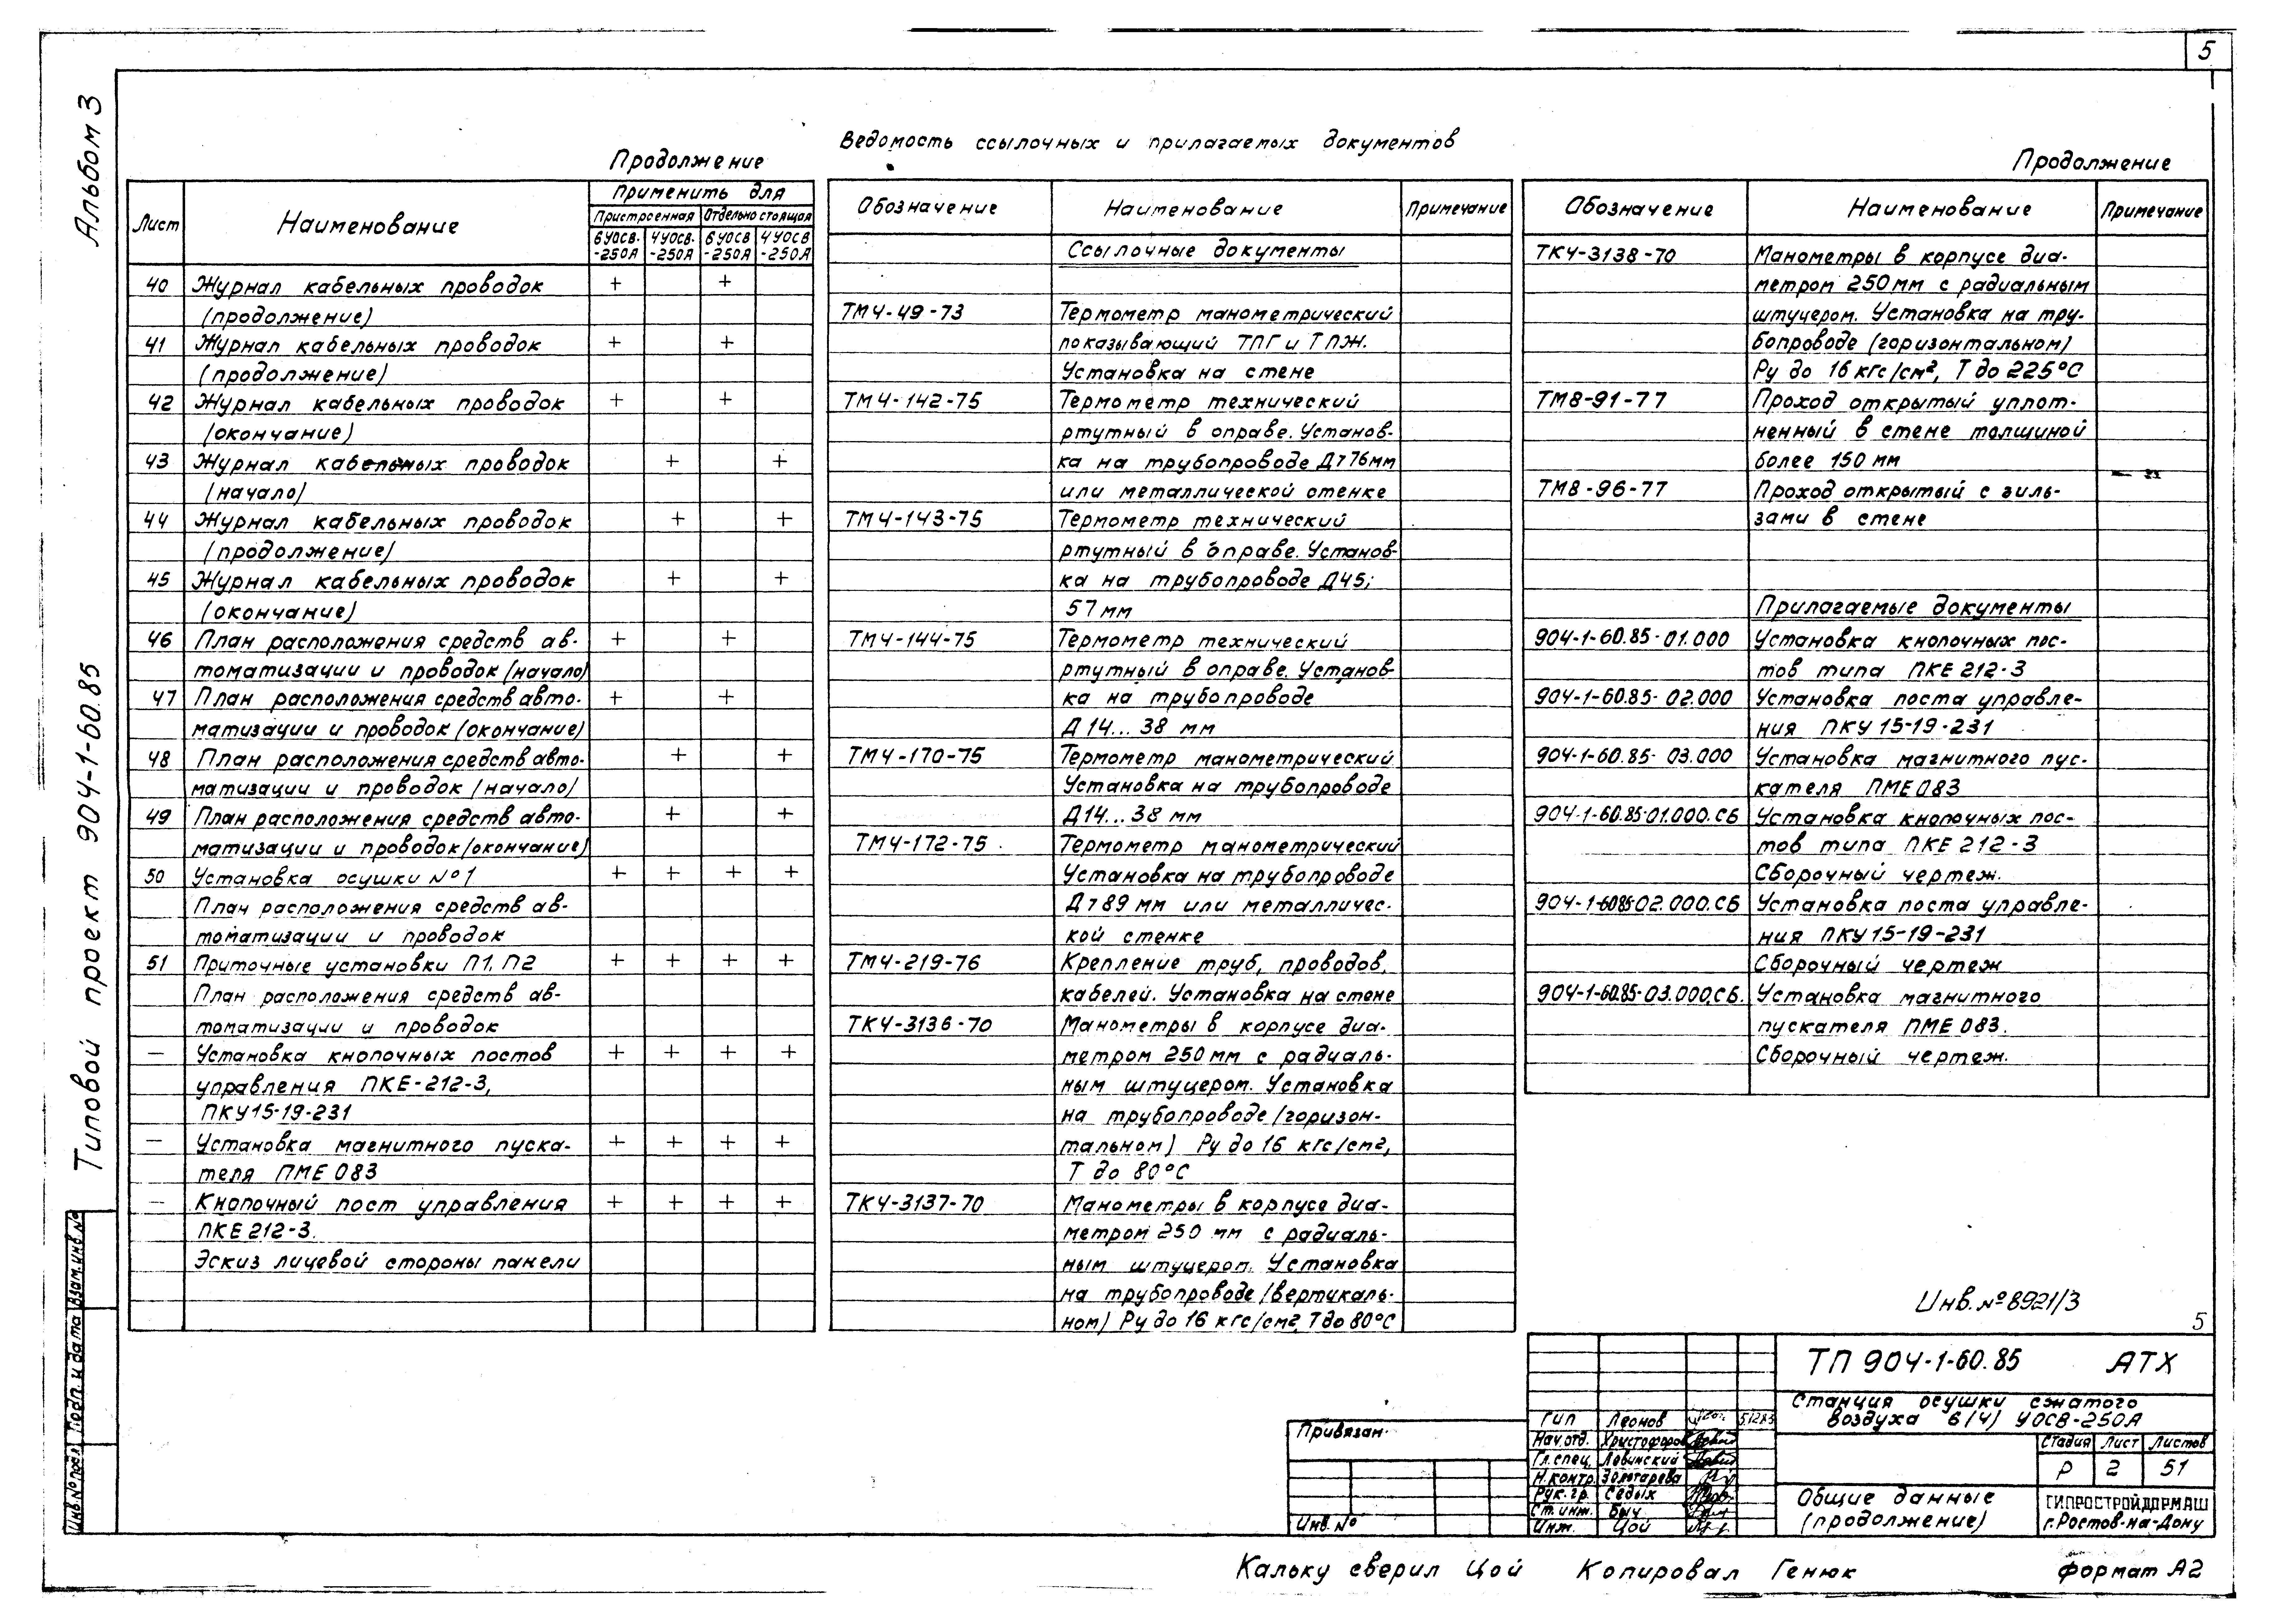 5
Альбом 3
Типовой проект 904-1-60.85
Взам. инв. №
Подп. и дата
Инв. № подл.
Продолжение
Лист
Наименование
Применить для
Пристроенная
Отдельно стоящая
6 УОСВ-250А
4 УОСВ-250А
6 УОСВ-250А
4 УОСВ-250А
40 Журнал кабельных проводок + +
(продолжение)
41 Журнал кабельных проводок + +
(продолжение)
42 Журнал кабельных проводок + +
(окончание)
43 Журнал кабельных проводок + +
(начало)
44 Журнал кабельных проводок + +
(продолжение)
45 Журнал кабельных проводок + +
(окончание)
46 План расположения средств ав- + +
томатизации и проводок (начало)
47 План расположения средств авто- + +
матизации и проводок (окончание)
48 План расположения средств авто- + +
матизации и проводок (начало)
49 План расположения средств авто- + +
матизации и проводок (окончание)
50 Установка осушки №1 + + + +
План расположения средств ав-
томатизации и проводок
51 Приточные установки П1, П2 + + + +
План расположения средств ав-
томатизации и проводок
— Установка кнопочных постов + + + +
управления ПКЕ-212-3,
ПКУ15-19-231
— Установка магнитного пуска- + + + +
теля ПМЕ 083
— Кнопочный пост управления + + + +
ПКЕ 212-3.
Эскиз лицевой стороны панели
Ведомость ссылочных и прилагаемых документов
Обозначение
Наименование
Примечание
Ссылочные документы
ТМ4-49-73 Термометр манометрический
показывающий ТПГ и ТПЖ.
Установка на стене
ТМ4-142-75 Термометр технический
ртутный в оправе. Установ-
ка на трубопроводе Д>76мм
или металлической стенке
ТМ4-143-75 Термометр технический
ртутный в оправе. Установ-
ка на трубопроводе Д45;
57 мм
ТМ4-144-75 Термометр технический
ртутный в оправе. Установ-
ка на трубопроводе
Д 14... 38 мм
ТМ4-170-75 Термометр манометрический
Установка на трубопроводе
Д14... 38 мм
ТМ4-172-75 Термометр манометрический
Установка на трубопроводе
Д>89 мм или металличес-
кой стенке
ТМ4-219-76 Крепление труб, проводов,
кабелей. Установка на стене
ТК4-3136-70 Манометры в корпусе диа-
метром 250 мм с радиаль-
ным штуцером. Установка
на трубопроводе (горизон-
тальном) Ру до 16 кгс/см²,
Т до 80°С
ТК4-3137-70 Манометры в корпусе диа-
метром 250 мм с радиаль-
ным штуцером. Установка
на трубопроводе (вертикаль-
ном) Ру до 16 кгс/см², Т до 80°С
Продолжение
Обозначение
Наименование
Примечание
ТК4-3138-70 Манометры в корпусе диа-
метром 250 мм с радиальным
штуцером. Установка на тру-
бопроводе (горизонтальном)
Ру до 16 кгс/см², Т до 225°С
ТМ8-91-77 Проход открытый уплот-
ненный в стене толщиной
более 150 мм
ТМ8-96-77 Проход открытый с гиль-
зами в стене
Прилагаемые документы
904-1-60.85-01.000 Установка кнопочных пос-
тов типа ПКЕ 212-3
904-1-60.85-02.000 Установка поста управле-
ния ПКУ 15-19-231
904-1-60.85-03.000 Установка магнитного пус-
кателя ПМЕ 083
904-1-60.85-01.000.СБ Установка кнопочных пос-
тов типа ПКЕ 212-3
Сборочный чертеж.
904-1-60.85-02.000.СБ Установка поста управле-
ния ПКУ 15-19-231
Сборочный чертеж
904-1-60.85-03.000.СБ. Установка магнитного
пускателя ПМЕ 083.
Сборочный чертеж.
Инв. № 8921/3
5
ТП 904-1-60.85 АТХ
Станция осушки сжатого
воздуха 6(4) УОСВ-250А
Гип Леонов
Нач. отд. Христофоров
Гл. спец. Ловинский
Н. контр. Золотарева
Рук. гр. Седых
Ст. инж. Быч
Инж. Цой
Стадия Лист Листов
Р 2 51
Общие данные
(продолжение)
ГИПРОСТРОЙДОРМАШ
г. Ростов-на-Дону
Привязан
Инв. №
Кальку сверил Цой Копировал Генюк формат А2